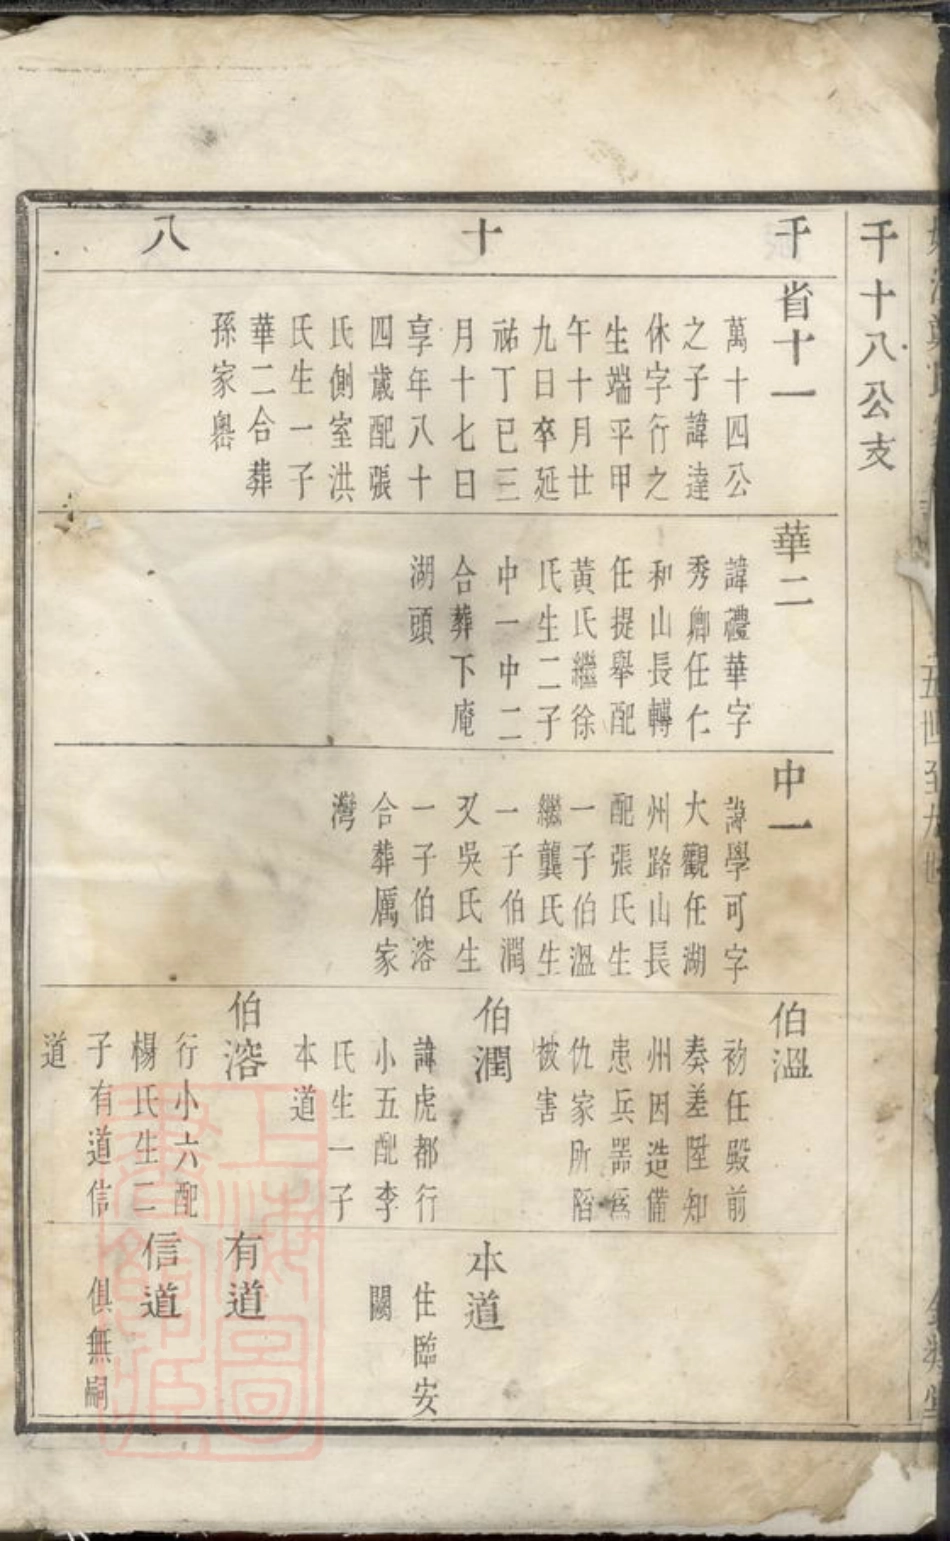 千十八公支
千十八
省十一
萬十四公
之子諱達
休字行之
生端平甲
午十月廿
九日卒延
祐丁巳三
月十七日
享年八十
四歲配張
氏側室洪
氏生一子
華二合葬
孫家嶴
華二
諱禮華字
秀卿任仁
和山長轉
任提舉配
黃氏繼徐
氏生二子
中一中二
合葬下庵
湖頭
中一
諱學可字
大觀任湖
州路山長
配張氏生
一子伯溫
繼龔氏生
一子伯潤
又吳氏生
一子伯溶
合葬厲家
灣
伯溫
初任殿前
奏差陞知
州因造備
患兵器爲
仇家所陷
被害
伯潤
諱虎都行
小五配李
氏生一子
本道
伯溶
行小六配
楊氏生二
子有道信
道
本道
住臨安
關
有道
信道
俱無嗣
五世至九世